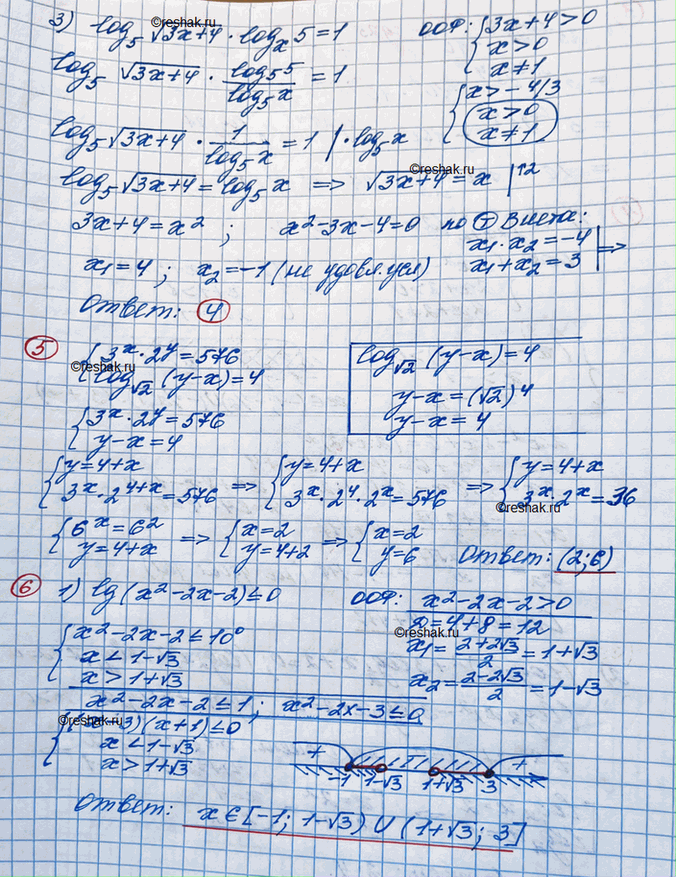 ©reshak.ru
3) log₅ √3x+4 · logₓ 5 = 1
ООФ: { 3x+4>0
x>0
x≠1
log₅ √3x+4 · log₅5 / log₅x = 1
{ x>-4/3
x>0
x≠1
log₅ √3x+4 · 1 / log₅x = 1 | · log₅x
©reshak.ru
log₅ √3x+4 = log₅ x => √3x+4 = x |↑2
3x+4=x² ; x²-3x-4=0 по Т Виета:
x₁·x₂=-4
x₁+x₂=3 | =>
x₁=4 ; x₂=-1 (не удовл. усл)
Ответ: 4
5 { 3ˣ·2ʸ=576
©reshak.ru
log√2 (y-x)=4
log√2 (y-x)=4
y-x=(√2)⁴
y-x=4
{ 3ˣ·2ʸ=576
y-x=4
{ y=4+x
3ˣ·2⁴⁺ˣ=576
=> { y=4+x
3ˣ·2⁴·2ˣ=576
=> { y=4+x
3ˣ·2ˣ=36
©reshak.ru
{ 6ˣ=6²
y=4+x
=> { x=2
y=4+2
=> { x=2
y=6
Ответ: (2;6)
6 1) lg(x²-2x-2)≤0
ООФ: x²-2x-2>0
D=4+8=12
©reshak.ru
x₁= 2+2√3 / 2 =1+√3
x₂= 2-2√3 / 2 =1-√3
{ x²-2x-2≤10⁰
x<1-√3
x>1+√3
x²-2x-2≤1 ; x²-2x-3≤0
©reshak.ru
{ (x-3)(x+1)≤0
x<1-√3
x>1+√3
+ - +
-1 1-√3 1+√3 3
Ответ: x∈[-1; 1-√3) ∪ (1+√3; 3]